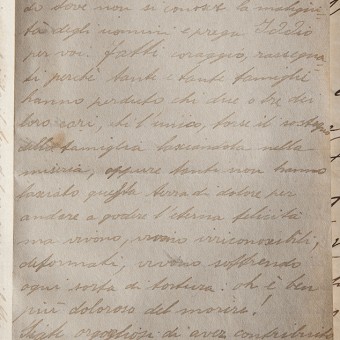 di dove non si conosce la malignità
tà degli uomini e prega Iddio
per voi. Fatti coraggio, rassegna
ti perchè tante e tante famiglie
hanno perduto chi due o tre dei
loro cari, chi l'unico, forse il sostegno
della famiglia lasciandola nella
miseria, oppure tanti non hanno
lasciato questa terra di dolore per
andare a godere l'eterna felicità
ma vivono, vivono irriconoscibili,
deformati, vivono soffrendo
ogni sorta di tortura: oh è ben
più doloroso del morire!
orgogliosi di aver contribuito